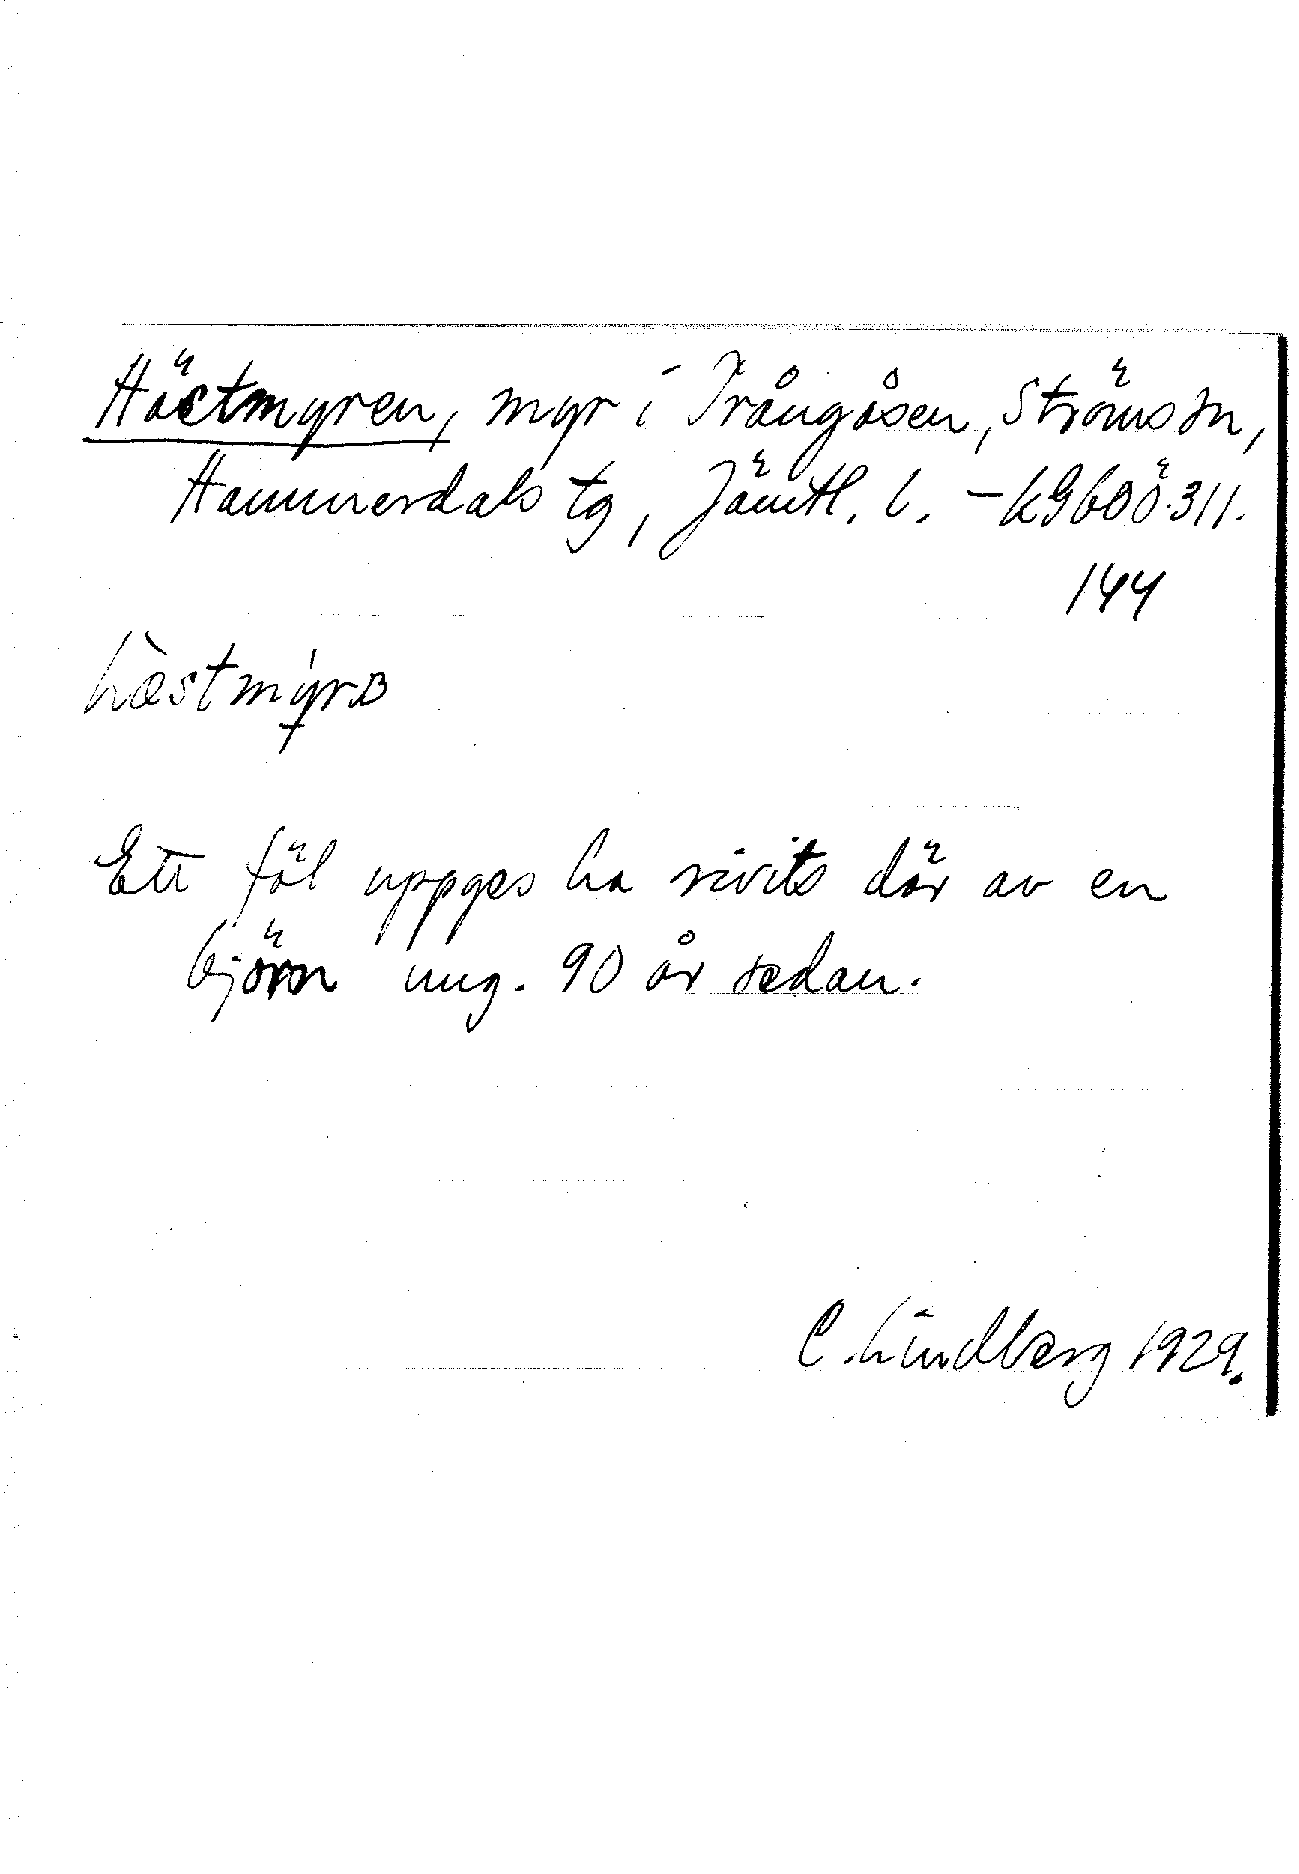 Hästmyren, myr i Trångåsen, Ströms sn,
Hammerdals tg, Jämtl. l. – kGbOÖ.311.
144
Ett föl uppges ha rivits där av en
björn ung. 90 år sedan.
C. Lindberg 1929.